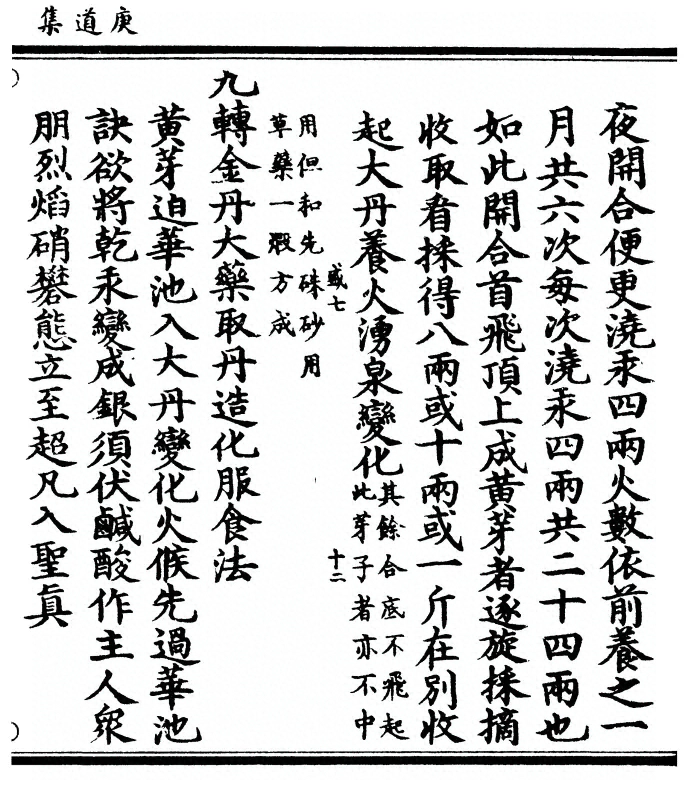 庚道集
夜開合便更澆汞四兩火數依前養之一
月共六次每次澆汞四兩共二十四兩也
如此開合首飛頂上成黃芽者逐旋採摘
收取看採得八兩或十兩或一斤在別收
起大丹養火湧泉變化其餘合底不飛起
此芽子者亦不中
盛七 十二
用但和先硃砂用
草藥一煅方成
九轉金丹大藥取丹造化服食法
黃芽迫華池入大丹變化火候先過華池
訣欲將乾汞變成銀須伏鹹酸作主人眾
朋烈焰硝礬態立至超凡入聖真